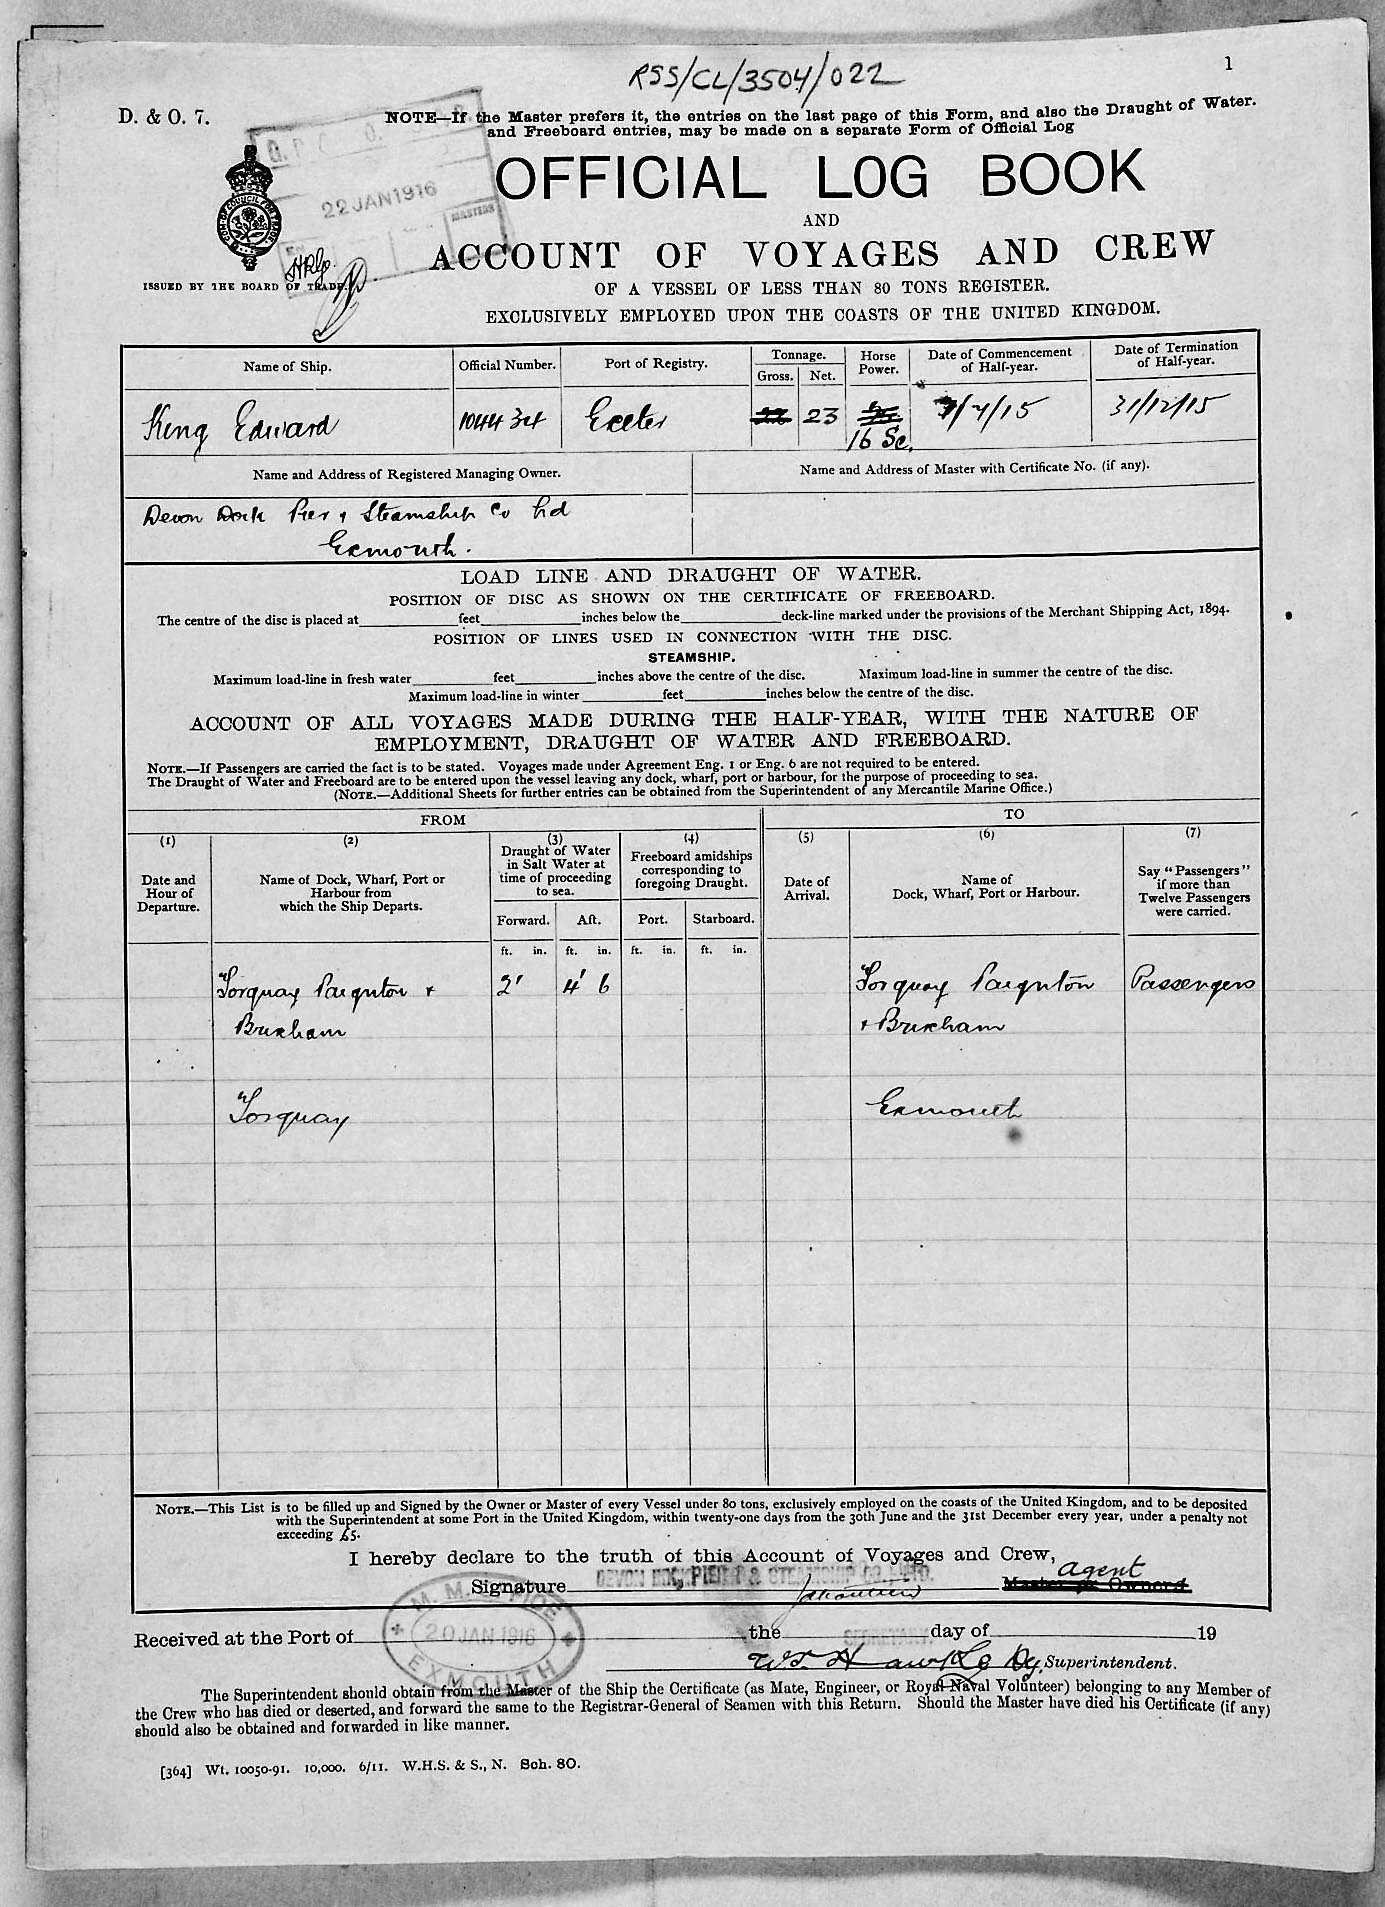 RSS/CL/3504/022
1
D. & O. 7.
NOTE—If the Master prefers it, the entries on the last page of this Form, and also the Draught of Water.
and Freeboard entries, may be made on a separate Form of Official Log
22 JAN 1916
MASTERS
OFFICIAL LOG BOOK
AND
ACCOUNT OF VOYAGES AND CREW
ISSUED BY THE BOARD OF TRADE.
OF A VESSEL OF LESS THAN 80 TONS REGISTER.
EXCLUSIVELY EMPLOYED UPON THE COASTS OF THE UNITED KINGDOM.
Name of Ship. Official Number. Port of Registry. Tonnage. Gross. Net. Horse Power. Date of Commencement of Half-year. Date of Termination of Half-year.
King Edward 104434 Exeter 23 1/7/15 31/12/15
16 Sc.
Name and Address of Registered Managing Owner. Name and Address of Master with Certificate No. (if any).
Devon Dock Pier & Steamship Co Ltd
Exmouth.
LOAD LINE AND DRAUGHT OF WATER.
POSITION OF DISC AS SHOWN ON THE CERTIFICATE OF FREEBOARD.
The centre of the disc is placed at feet inches below the deck-line marked under the provisions of the Merchant Shipping Act, 1894.
POSITION OF LINES USED IN CONNECTION WITH THE DISC.
STEAMSHIP.
Maximum load-line in fresh water feet inches above the centre of the disc. Maximum load-line in summer the centre of the disc.
Maximum load-line in winter feet inches below the centre of the disc.
ACCOUNT OF ALL VOYAGES MADE DURING THE HALF-YEAR, WITH THE NATURE OF
EMPLOYMENT, DRAUGHT OF WATER AND FREEBOARD.
NOTE.—If Passengers are carried the fact is to be stated. Voyages made under Agreement Eng. 1 or Eng. 6 are not required to be entered.
The Draught of Water and Freeboard are to be entered upon the vessel leaving any dock, wharf, port or harbour, for the purpose of proceeding to sea.
(NOTE.—Additional Sheets for further entries can be obtained from the Superintendent of any Mercantile Marine Office.)
FROM TO
(1) (2) (3) (4) (5) (6) (7)
Date and Hour of Departure. Name of Dock, Wharf, Port or Harbour from which the Ship Departs. Draught of Water in Salt Water at time of proceeding to sea. Freeboard amidships corresponding to foregoing Draught. Date of Arrival. Name of Dock, Wharf, Port or Harbour. Say "Passengers" if more than Twelve Passengers were carried.
Forward. Aft. Port. Starboard.
ft. in. ft. in. ft. in. ft. in.
Torquay Paignton + 2' 4' 6 Torquay Paignton Passengers
Brixham + Brixham
Torquay Exmouth
NOTE.—This List is to be filled up and Signed by the Owner or Master of every Vessel under 80 tons, exclusively employed on the coasts of the United Kingdom, and to be deposited
with the Superintendent at some Port in the United Kingdom, within twenty-one days from the 30th June and the 31st December every year, under a penalty not
exceeding £5.
I hereby declare to the truth of this Account of Voyages and Crew,
agent
Signature DEVON DOCK, PIER & STEAMSHIP CO. LTD. Master or Owner
Received at the Port of the SECRETARY. day of 19
M. M. OFFICE
20 JAN 1916
EXMOUTH
Dy. Superintendent.
The Superintendent should obtain from the Master of the Ship the Certificate (as Mate, Engineer, or Royal Naval Volunteer) belonging to any Member of
the Crew who has died or deserted, and forward the same to the Registrar-General of Seamen with this Return. Should the Master have died his Certificate (if any)
should also be obtained and forwarded in like manner.
[364] Wt. 10050-91. 10,000. 6/11. W.H.S. & S., N. Sch. 80.